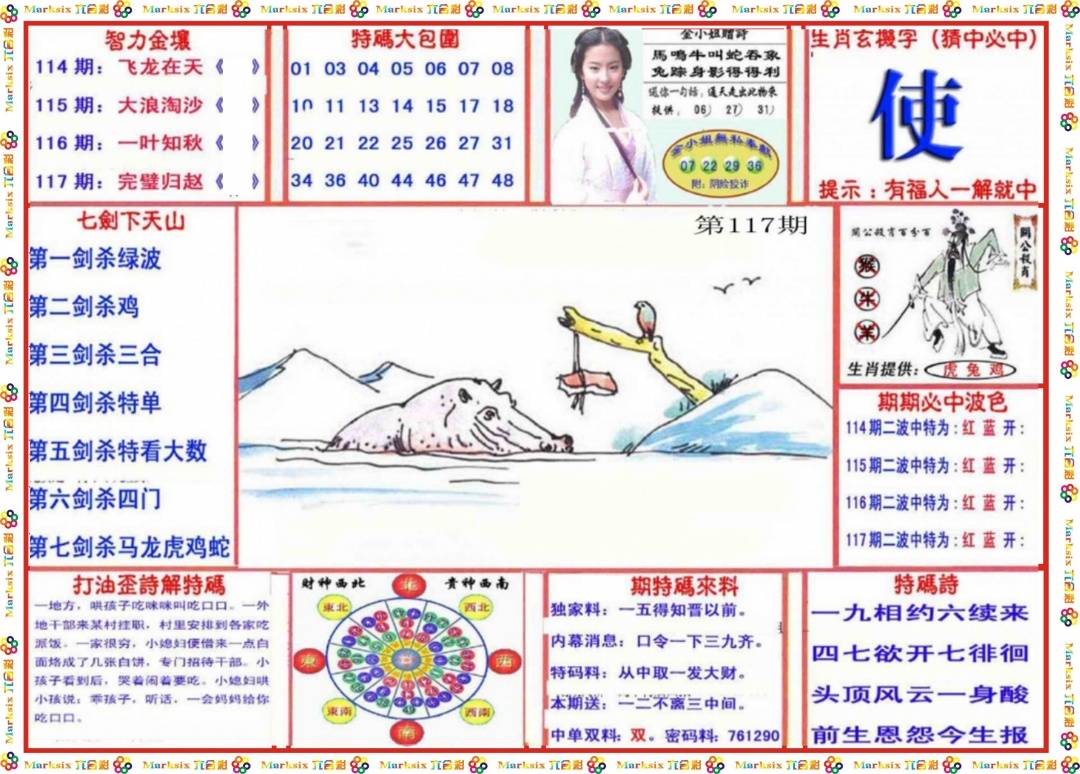 Marksix 六合彩
智力金壤
114 期：飞龙在天《 》
115 期：大浪淘沙《 》
116 期：一叶知秋《 》
117 期：完璧归赵《 》
特碼大包圍
01 03 04 05 06 07 08
10 11 13 14 15 17 18
20 21 22 25 26 27 31
34 36 40 44 46 47 48
金小姐赠詩
馬鳴牛叫蛇吞象
兔踪身影得得利
提供：06） 27） 31）
金小姐無私奉獻
07 22 29 36
附：阴险狡诈
生肖玄機字（猜中必中）
使
提示：有福人一解就中
七劍下天山
第一剑杀绿波
第二剑杀鸡
第三剑杀三合
第四剑杀特单
第五剑杀特看大数
第六剑杀四门
第七剑杀马龙虎鸡蛇
第117期
關公殺肖百分百
關公殺肖
猴
牛
羊
生肖提供：虎 兔 鸡
期期必中波色
114期二波中特为：红 蓝 开：
115期二波中特为：红 蓝 开：
116期二波中特为：红 蓝 开：
117期二波中特为：红 蓝 开：
打油歪詩解特碼
一地方，哄孩子吃咪咪叫吃口口。一外
地干部来某村挂职，村里安排到各家吃
派饭。一家很穷，小媳妇便借来一点白
面烙成了几张白饼，专门招待干部。小
孩子看到后，哭着闹着要吃。小媳妇哄
小孩说：乖孩子，听话，一会妈妈给你
吃口口。
财神西北
贵神西南
北
東北
西北
東
西
東南
西南
南
期特碼來料
独家料：一五得知晋以前。
内幕消息：口令一下三九齐。
特码料：从中取一发大财。
本期送：一二不离三中间。
中单双料：双。密码料：761290
特碼詩
一九相约六续来
四七欲开七徘徊
头顶风云一身酸
前生恩怨今生报